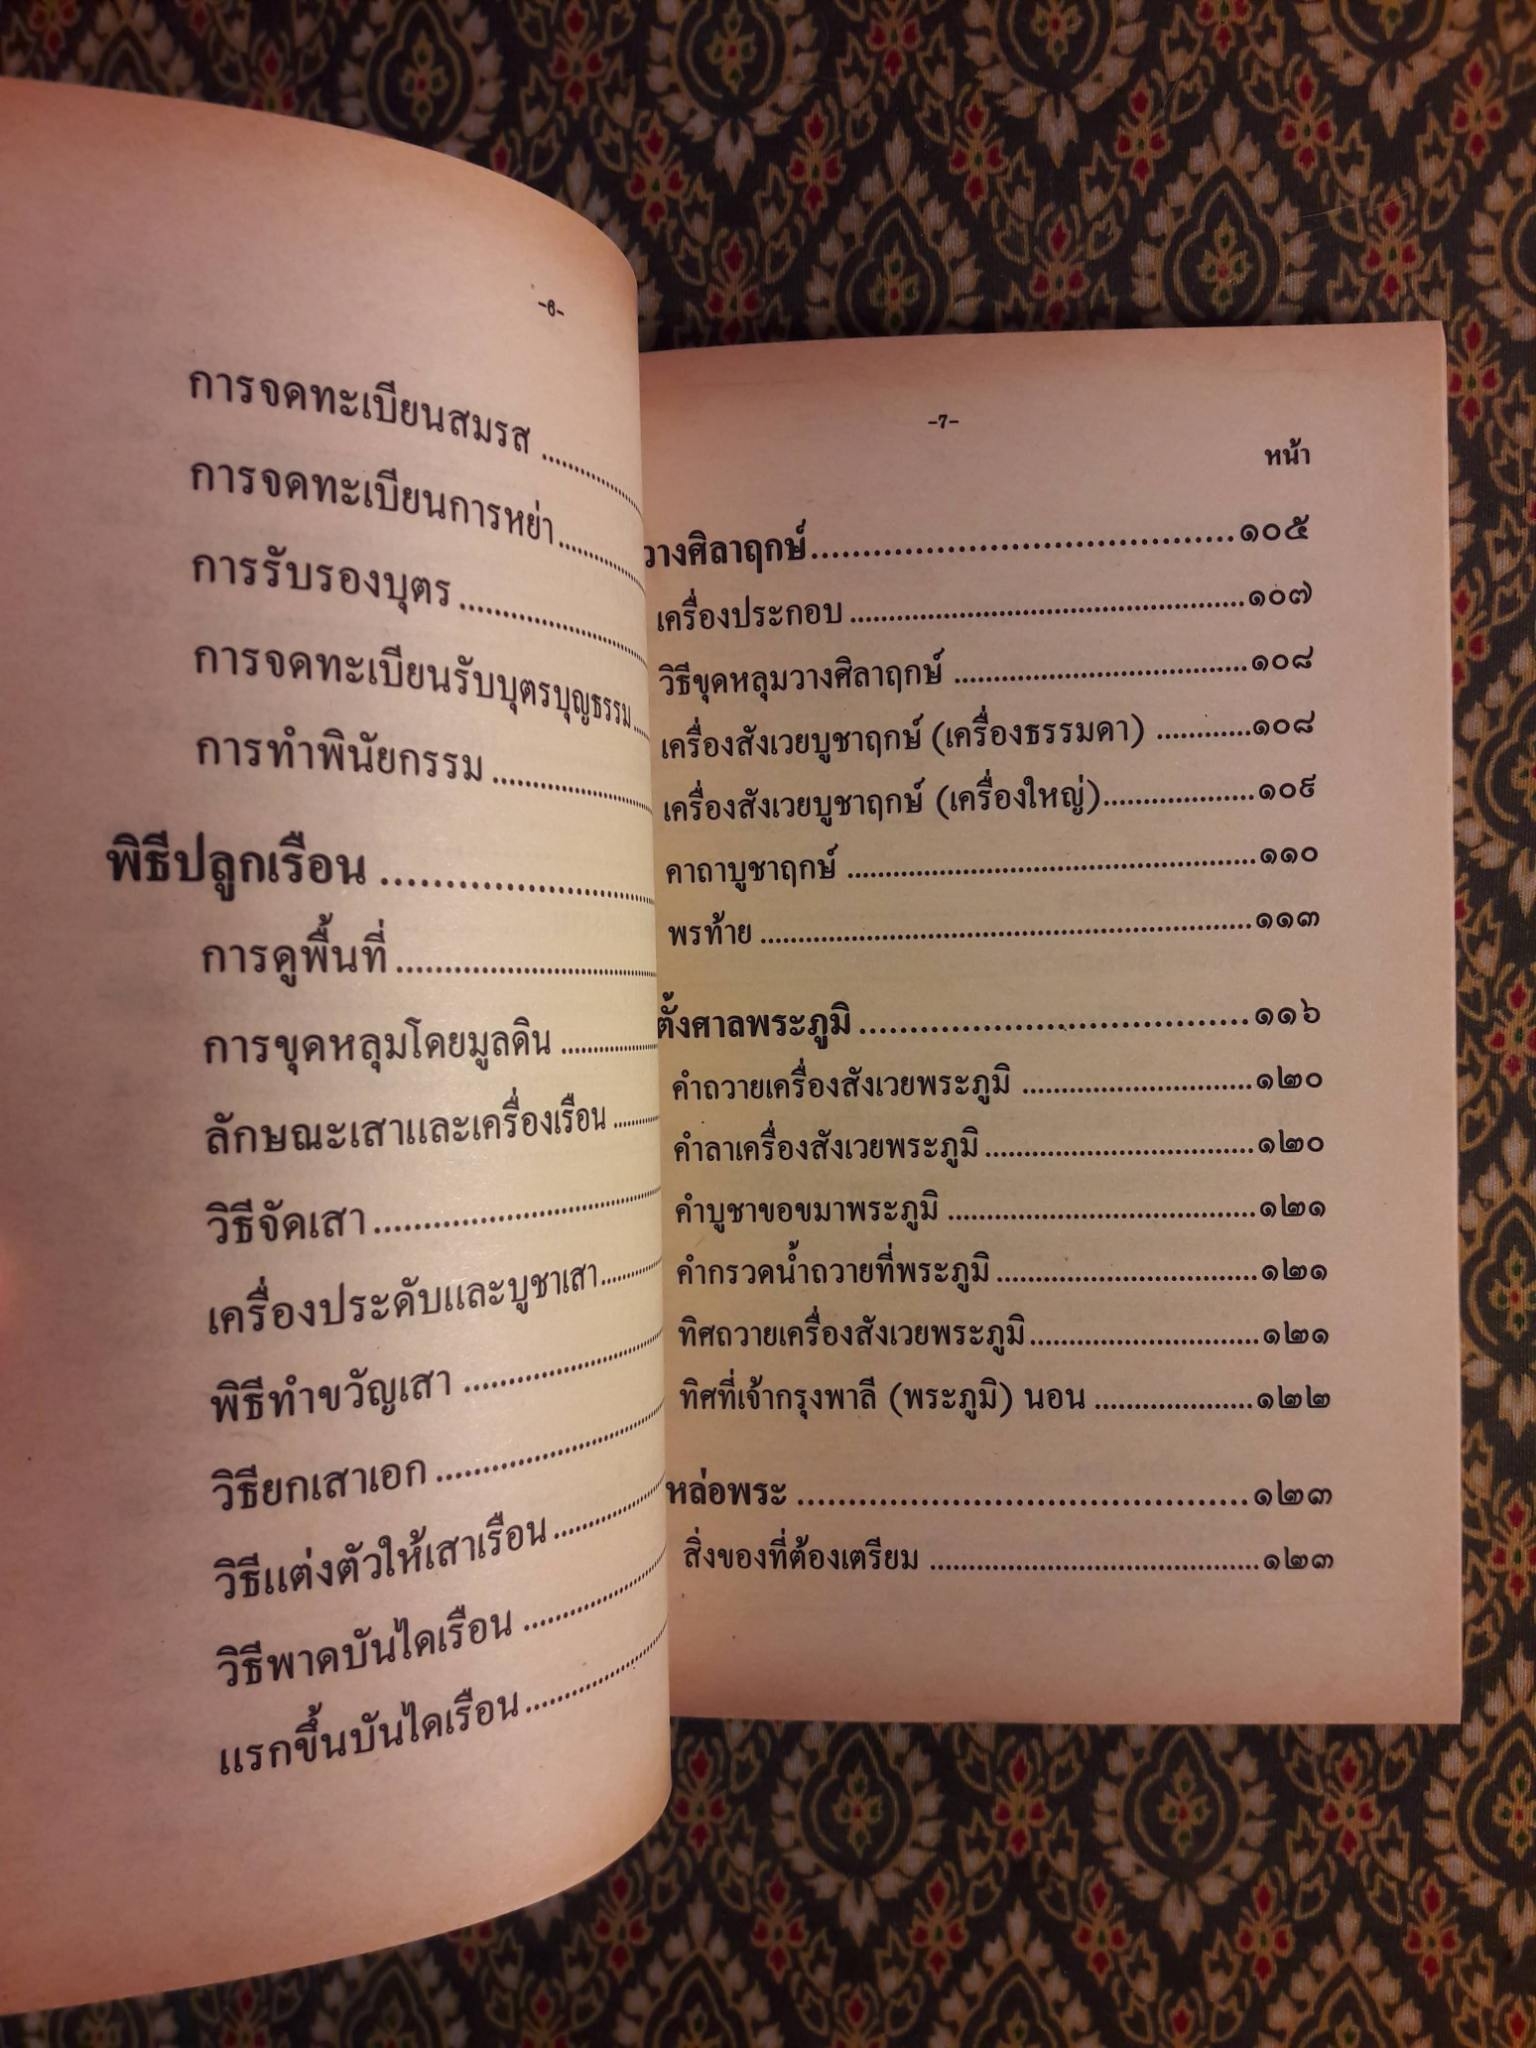 -6-
การจดทะเบียนสมรส
การจดทะเบียนการหย่า
การรับรองบุตร
การจดทะเบียนรับบุตรบุญธรรม
การทำพินัยกรรม
พิธีปลูกเรือน
การดูพื้นที่
การขุดหลุมโดยมูลดิน
ลักษณะเสาและเครื่องเรือน
วิธีจัดเสา
เครื่องประดับและบูชาเสา
พิธีทำขวัญเสา
วิธียกเสาเอก
วิธีแต่งตัวให้เสาเรือน
วิธีพาดบันไดเรือน
แรกขึ้นบันไดเรือน
-7-
หน้า
วางศิลาฤกษ์ ๑๐๕
เครื่องประกอบ ๑๐๗
วิธีขุดหลุมวางศิลาฤกษ์ ๑๐๘
เครื่องสังเวยบูชาฤกษ์ (เครื่องธรรมดา) ๑๐๘
เครื่องสังเวยบูชาฤกษ์ (เครื่องใหญ่) ๑๐๙
คาถาบูชาฤกษ์ ๑๑๐
พรท้าย ๑๑๓
ตั้งศาลพระภูมิ ๑๑๖
คำถวายเครื่องสังเวยพระภูมิ ๑๒๐
คำลาเครื่องสังเวยพระภูมิ ๑๒๐
คำบูชาขอขมาพระภูมิ ๑๒๑
คำกรวดน้ำถวายที่พระภูมิ ๑๒๑
ทิศถวายเครื่องสังเวยพระภูมิ ๑๒๑
ทิศที่เจ้ากรุงพาลี (พระภูมิ) นอน ๑๒๒
หล่อพระ ๑๒๓
สิ่งของที่ต้องเตรียม ๑๒๓